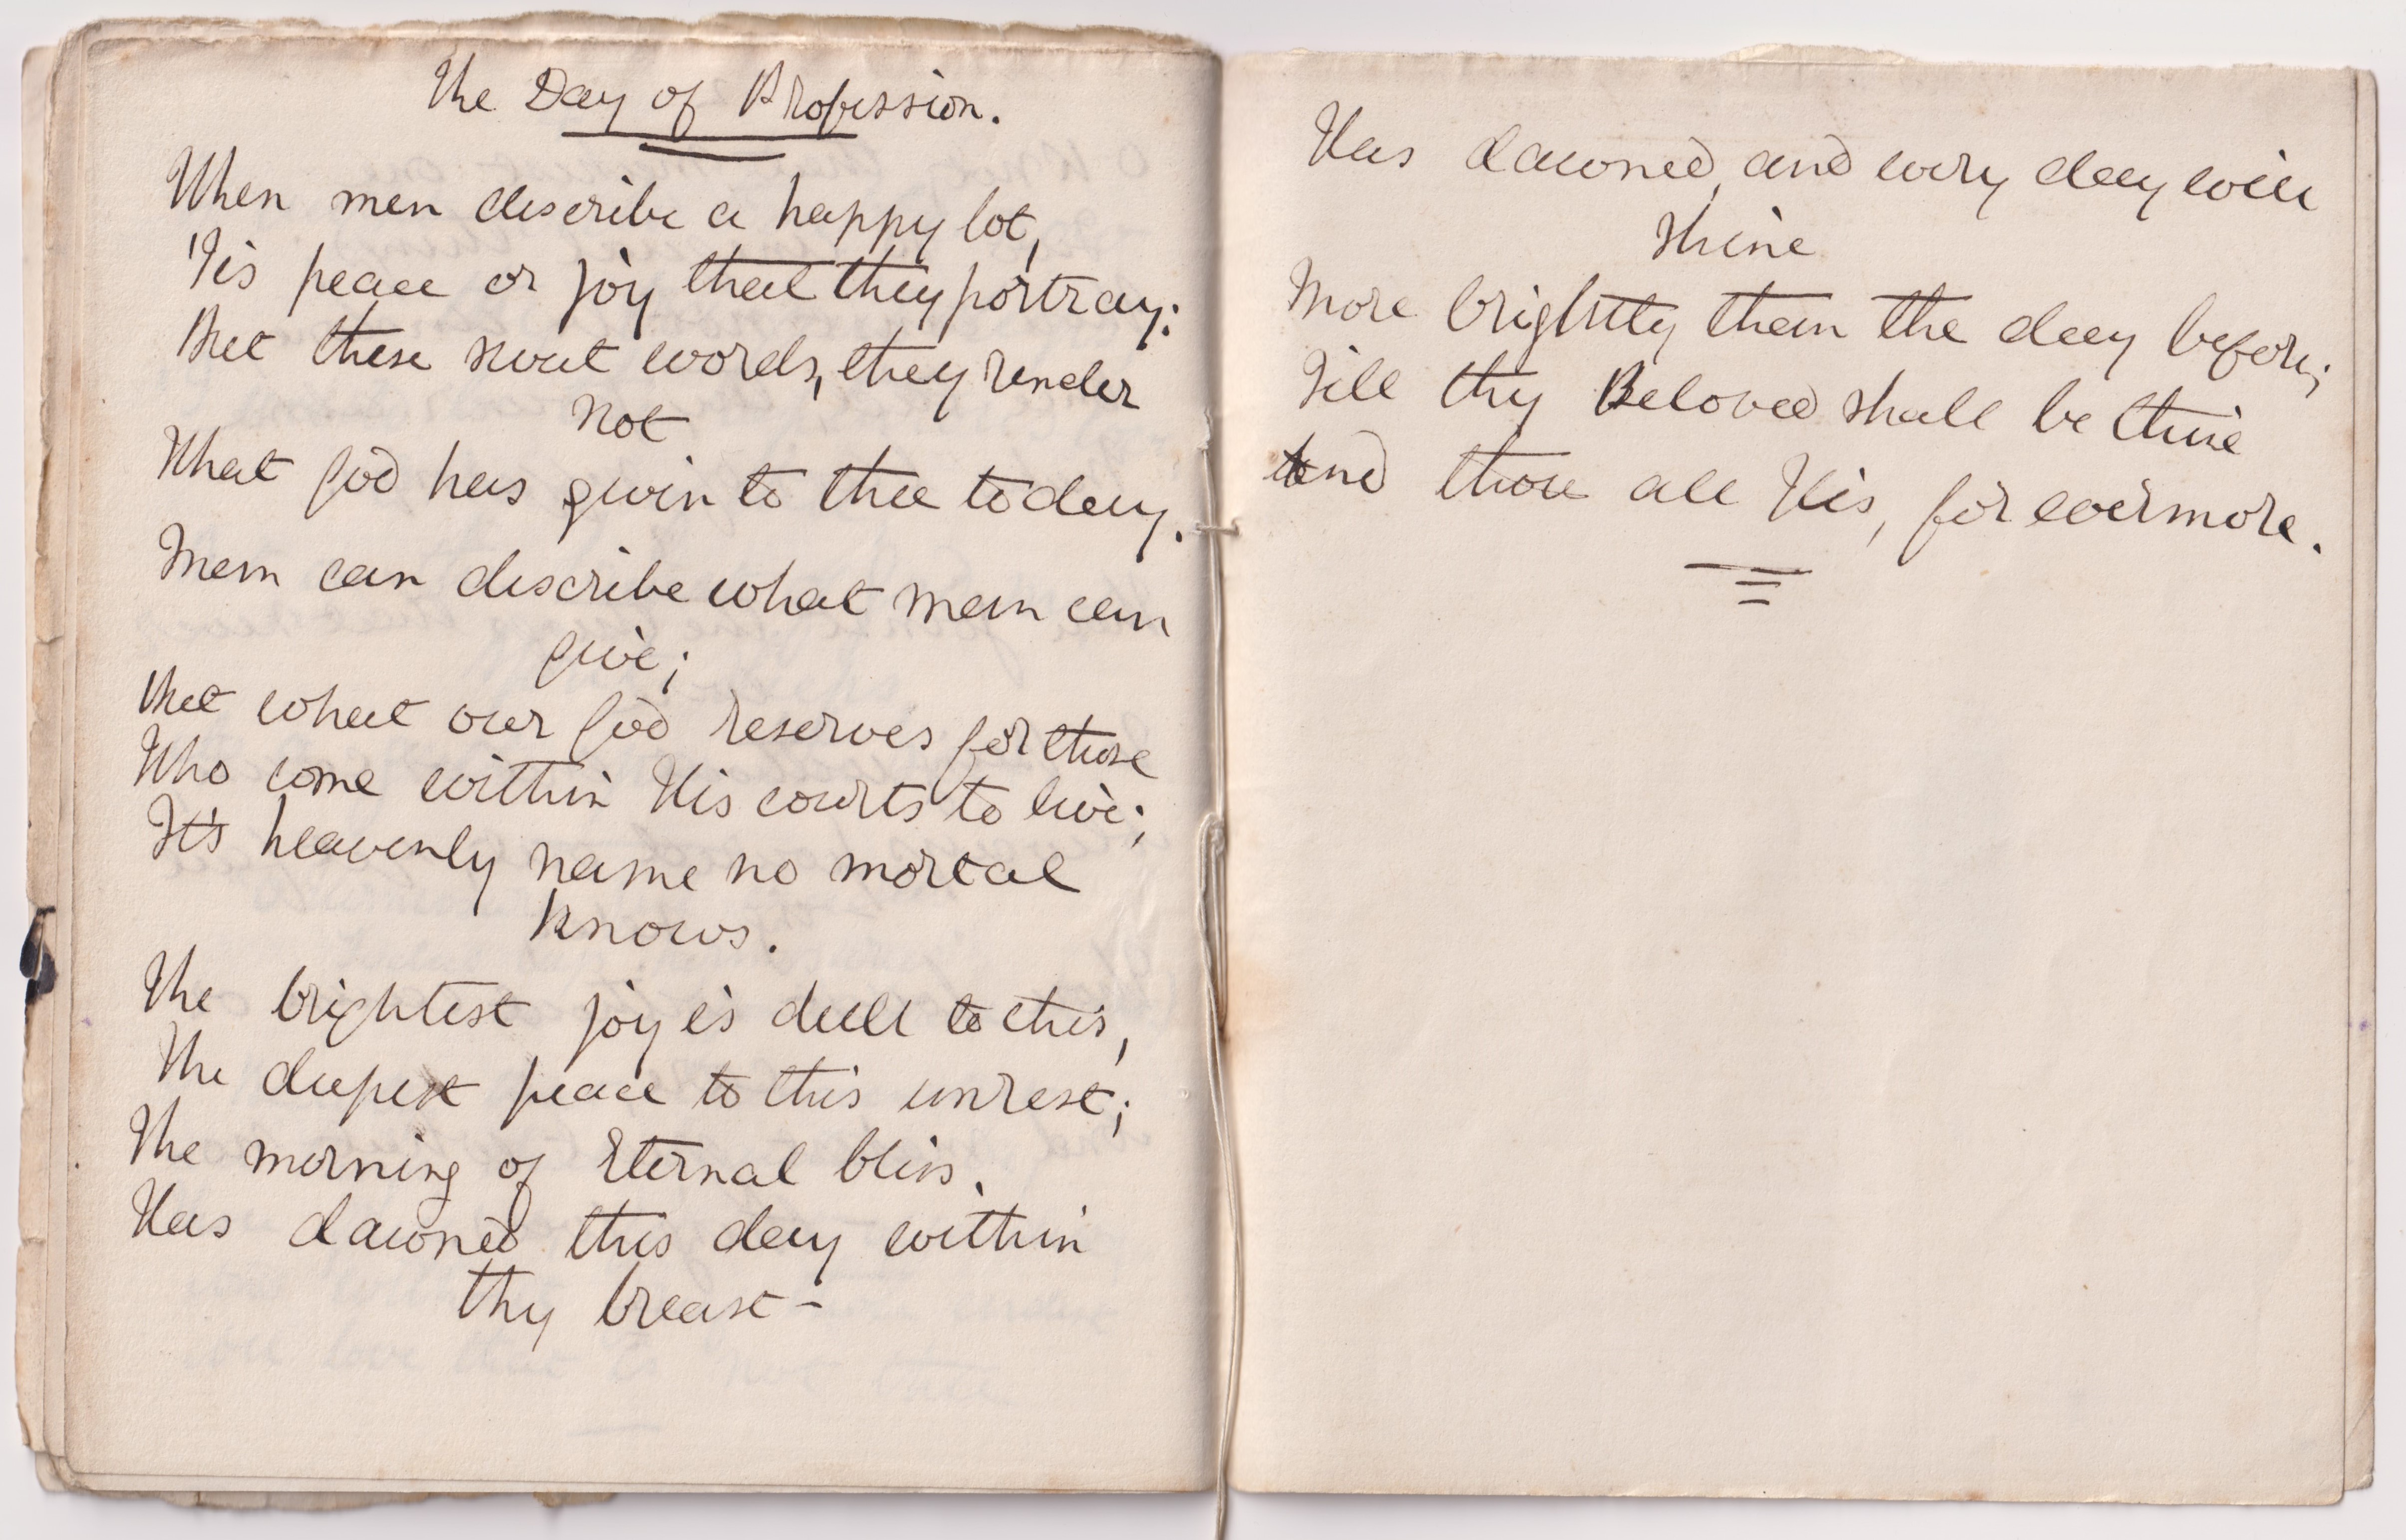 The Day of Profession.
When men describe a happy lot,
'Tis peace or joy that they portray:
But these sweet words, they render
not
What God has given to thee to day.
Man can describe what man can
give;
But what our God reserves for those
Who come within His courts to live;
It's heavenly name no mortal
knows.
The brightest joy is dull to this,
The deepest peace to this unrest;
The morning of Eternal bliss,
Has dawned this day within
thy breast -
Has dawned, and every day will
shine
More brightly than the day before;
Till thy Beloved shall be thine
And thou all His, for evermore.